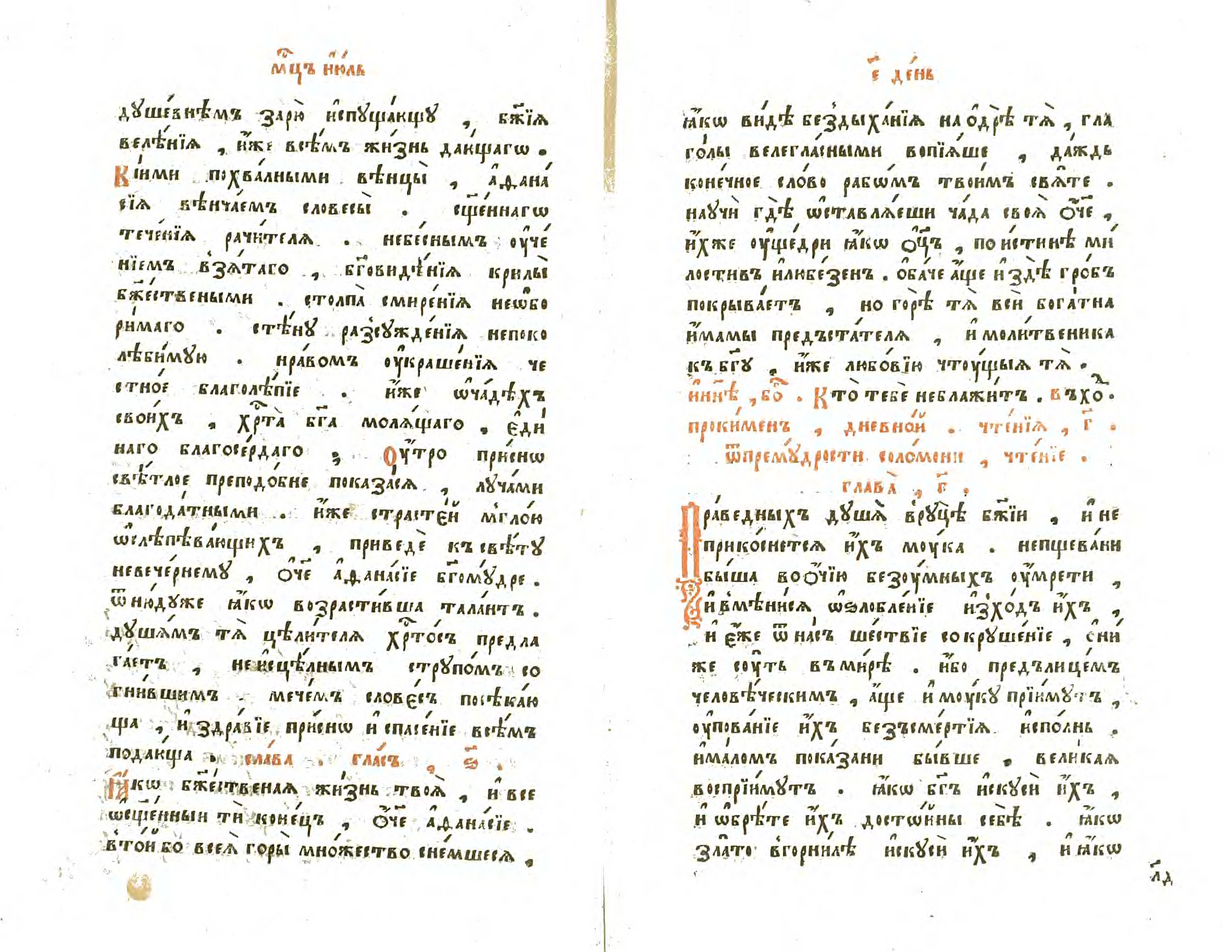 мⷭ҇цъ і҆ю́ль
душе́внѣмъ зарю̀ и҆спуща́ющу , бж҃їѧ
велѣ́нїѧ , и҆́же всѣ́мъ жи́знь даю́щагѡ .
Кі́ими похва́лными вѣнцы̀ , а҆ѳана́
сїѧ вѣнча́емъ словесы̀ . сщ҃е́ннагѡ
тече́нїѧ рачи́телѧ . небе́снымъ оу҆че́
нїемъ взѧ́таго , бг҃ови́дѣнїѧ крилы̀
бж҃е́ствеными . столпа̀ смире́нїѧ неѡбо
ри́маго . стѣ́ну разсужде́нїѧ непоко
лѣби́мую . нра́вомъ оу҆краше́нїѧ че
стно́е благолѣ́пїе . и҆́же ѡ҆ча́дѣхъ
свои́хъ , хрⷭ҇та̀ бг҃а молѧ́щаго , є҆ди́
наго благосе́рдаго ; Оу҆́тро при́снѡ
свѣ́тлое преподо́бне показа́сѧ , луча́ми
благода́тными . и҆́же страсте́й мгло́ю
ѡ҆слѣпѣва́ющихъ , приведѐ къ свѣ́ту
невече́рнему , ѻ҆́ч҃е а҆ѳана́сїе бг҃ому́дре .
ѿню́дуже ꙗ҆́кѡ возрасти́вша тала́нтъ .
душа́мъ тѧ̀ цѣли́телѧ хрⷭ҇то́съ предла
га́етъ , неисцѣ́лнымъ стру́помъ со
гни́вшимъ . мече́мъ слове́съ посѣка́ю
ща , и҆ здра́вїе при́снѡ и҆ спасе́нїе всѣ́мъ
подаю́ща . сла́ва . гла́съ , ѕ҃ .
Ꙗ҆́кѡ бж҃е́ственаѧ жи́знь твоѧ̀ , и҆ все
ѡ҆сщ҃е́нныи тѝ коне́цъ , ѻ҆́ч҃е а҆ѳана́сїе .
в то́й бо всеѧ̀ горы̀ мно́жество сне́мшеся ,
е҃ де́нь
ꙗ҆́кѡ ви́дѣ бездыха́нїѧ на ѻ҆дрѣ̀ тѧ̀ , гла
го́лы велегла́сными вопїѧ́ше , да́ждь
коне́чное сло́во рабѡ́мъ твои́мъ свѧ́те .
научѝ гдѣ̀ ѡ҆ставлѧ́еши ча́да своѧ̀ ѻ҆́ч҃е ,
и҆́хже оу҆ще́дри ꙗ҆́кѡ ѻ҆ц҃ъ , по и́стинѣ ми́
лостивъ и любе́зенъ . ѻ҆ба́че а҆́ще и҆ здѣ̀ гро́бъ
покрыва́етъ , но горѣ̀ тѧ̀ всѝ бога́тна
и҆́мамы предъста́телѧ , и҆ моли́твеника
къ бг҃у , и҆́же любо́вїю чтоу́щыѧ тѧ̀ .
и҆ ны́нѣ , бо҃ . Кто̀ тебѐ неблажи́тъ . въхо̑ .
проки́менъ , дневно́й . чте́нїѧ , г҃ .
ѿ прему́дрости соломо́ни , чте́нїе .
глава̀ , г҃ .
Пра́ведныхъ душа̀ в руцѣ̀ бж҃їи , и҆ не
прико́снетсѧ и҆́хъ моу́ка . непщева́ни
бы́ша во ѻ҆́чїю безоу́мныхъ оу҆мре́ти ,
и҆ вмѣни́сѧ ѡ҆ѕлобле́нїе и҆зхо́дъ и҆́хъ ,
и҆ є҆́же ѿ на́съ ше́ствїе сокруше́нїе , ѻ҆ни́
же соу́ть въ ми́рѣ . и҆́бо предъ лице́мъ
человѣ́ческимъ , а҆́ще и҆ моу́ку прїи́мутъ ,
оу҆пова́нїе и҆́хъ безъсме́ртїѧ и҆спо́лнь .
и҆ ма́ломъ пока́зани бы́вше , вели́каѧ
воспрїи́мутъ . ꙗ҆́кѡ бг҃ъ и҆скусѝ и҆́хъ ,
и҆ ѡ҆брѣ́те и҆́хъ досто́йны себѣ̀ . ꙗ҆́кѡ
зла́то в горни́лѣ и҆скусѝ и҆́хъ , и҆ ꙗ҆́кѡ
л҃д